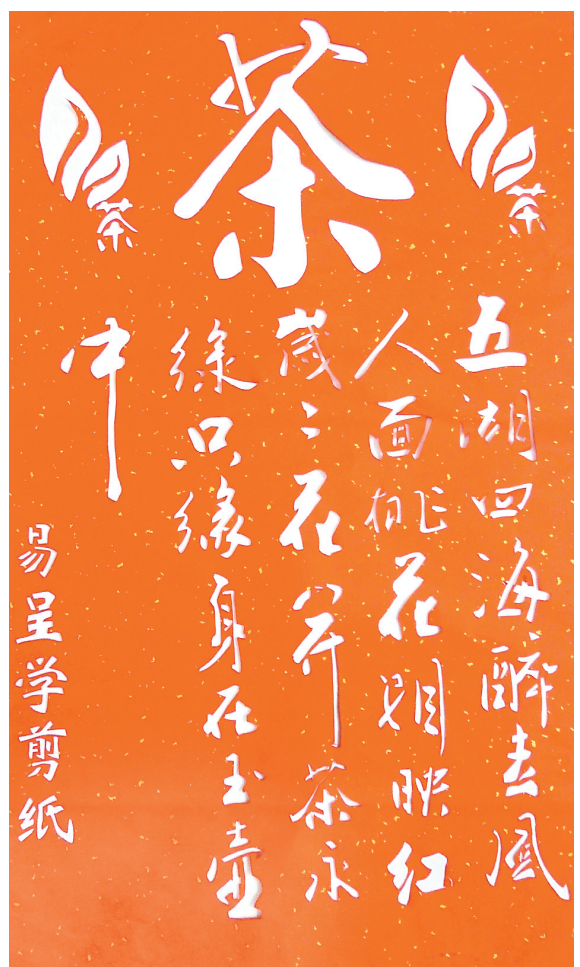 茶
茶
茶
五湖四海醉春風
人面桃花相映红
歲々花开茶永
綠只緣身在玉壺
中
易呈学剪纸